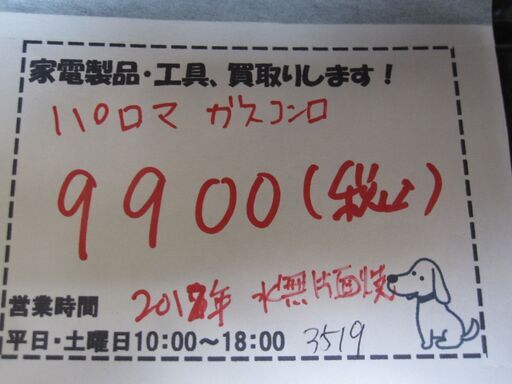 家電製品・工具、買取りします！
パロマ ガスコンロ
9900(税込)
2018年 水無片面焼
営業時間
平日・土曜日10:00～18:00 3519